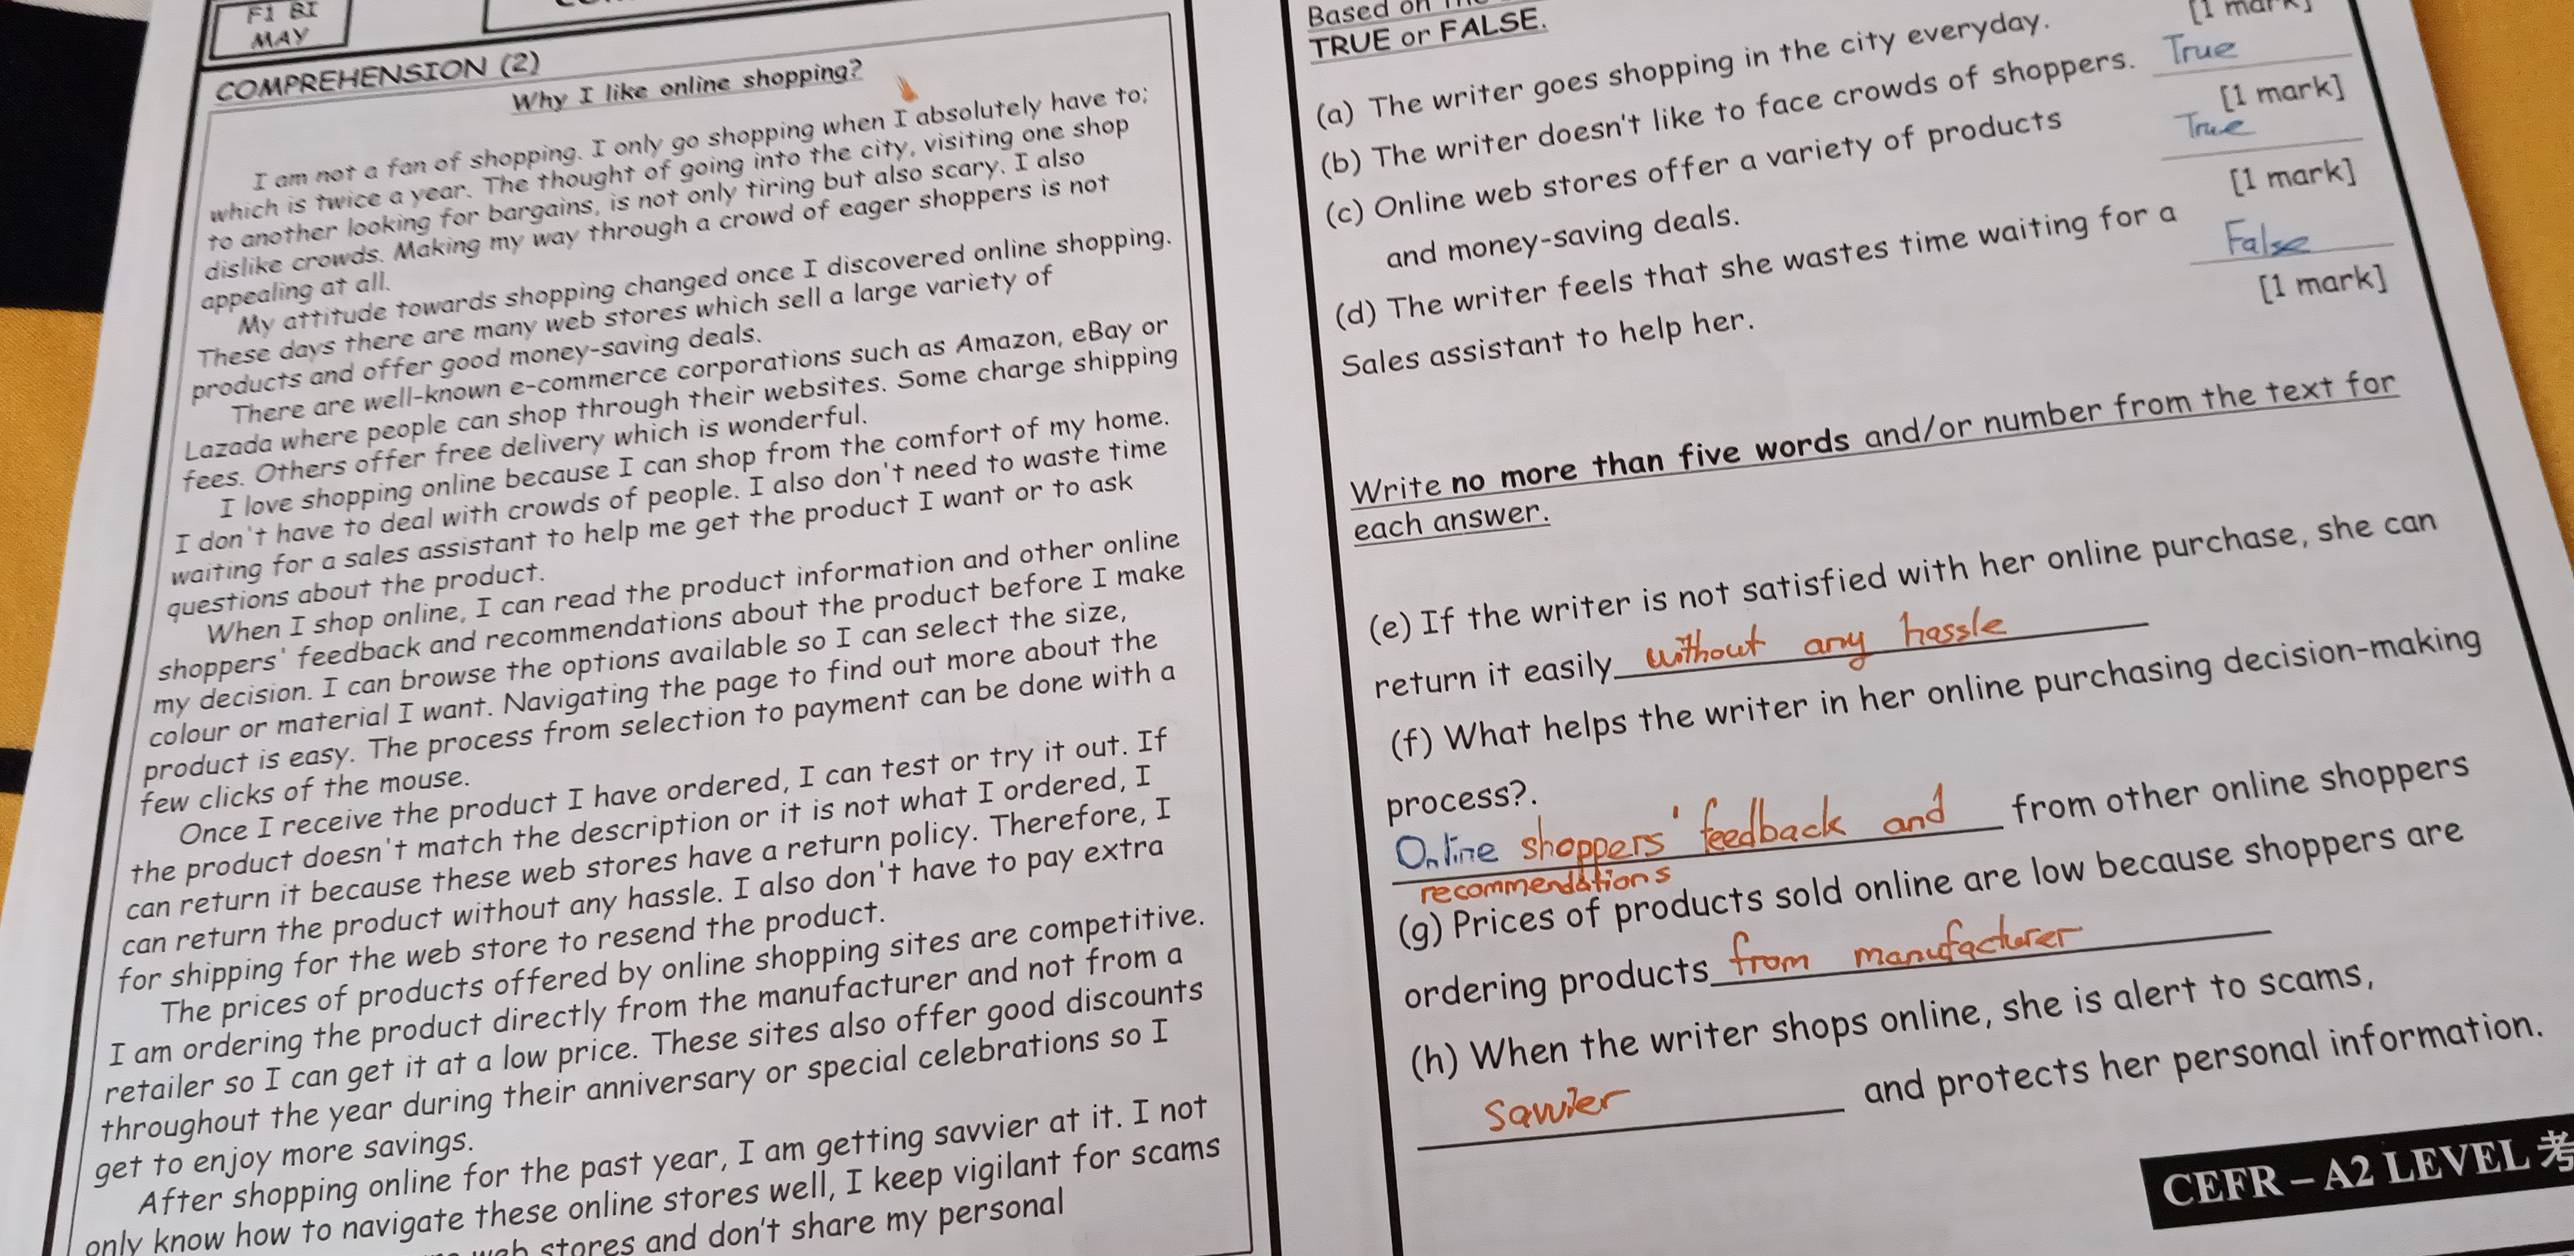 F1 BI
MAY
COMPREHENSION (2)
Why I like online shopping?
I am not a fan of shopping. I only go shopping when I absolutely have to;
which is twice a year. The thought of going into the city, visiting one shop
to another looking for bargains, is not only tiring but also scary. I also
dislike crowds. Making my way through a crowd of eager shoppers is not
appealing at all.
My attitude towards shopping changed once I discovered online shopping.
These days there are many web stores which sell a large variety of
products and offer good money-saving deals.
There are well-known e-commerce corporations such as Amazon, eBay or
Lazada where people can shop through their websites. Some charge shipping
fees. Others offer free delivery which is wonderful.
I love shopping online because I can shop from the comfort of my home.
I don't have to deal with crowds of people. I also don't need to waste time
waiting for a sales assistant to help me get the product I want or to ask
questions about the product.
When I shop online, I can read the product information and other online
shoppers' feedback and recommendations about the product before I make
my decision. I can browse the options available so I can select the size,
colour or material I want. Navigating the page to find out more about the
product is easy. The process from selection to payment can be done with a
few clicks of the mouse.
Once I receive the product I have ordered, I can test or try it out. If
the product doesn't match the description or it is not what I ordered, I
can return it because these web stores have a return policy. Therefore, I
can return the product without any hassle. I also don't have to pay extra
for shipping for the web store to resend the product.
The prices of products offered by online shopping sites are competitive.
I am ordering the product directly from the manufacturer and not from a
retailer so I can get it at a low price. These sites also offer good discounts
throughout the year during their anniversary or special celebrations so I
get to enjoy more savings.
After shopping online for the past year, I am getting savvier at it. I not
only know how to navigate these online stores well, I keep vigilant for scams
web stores and don't share my personal
Based on
TRUE or FALSE.
[1 mark]
(a) The writer goes shopping in the city everyday.
True
(b) The writer doesn't like to face crowds of shoppers.
[1 mark]
True
(c) Online web stores offer a variety of products
[1 mark]
and money-saving deals.
False
(d) The writer feels that she wastes time waiting for a
[1 mark]
Sales assistant to help her.
Write no more than five words and/or number from the text for
each answer.
(e) If the writer is not satisfied with her online purchase, she can
return it easily without any hassle
(f) What helps the writer in her online purchasing decision-making
process?.
Online shoppers' feedback and from other online shoppers
recommendations
(g) Prices of products sold online are low because shoppers are
ordering products from manufacturer
(h) When the writer shops online, she is alert to scams,
savvier and protects her personal information.
CEFR - A2 LEVEL 考